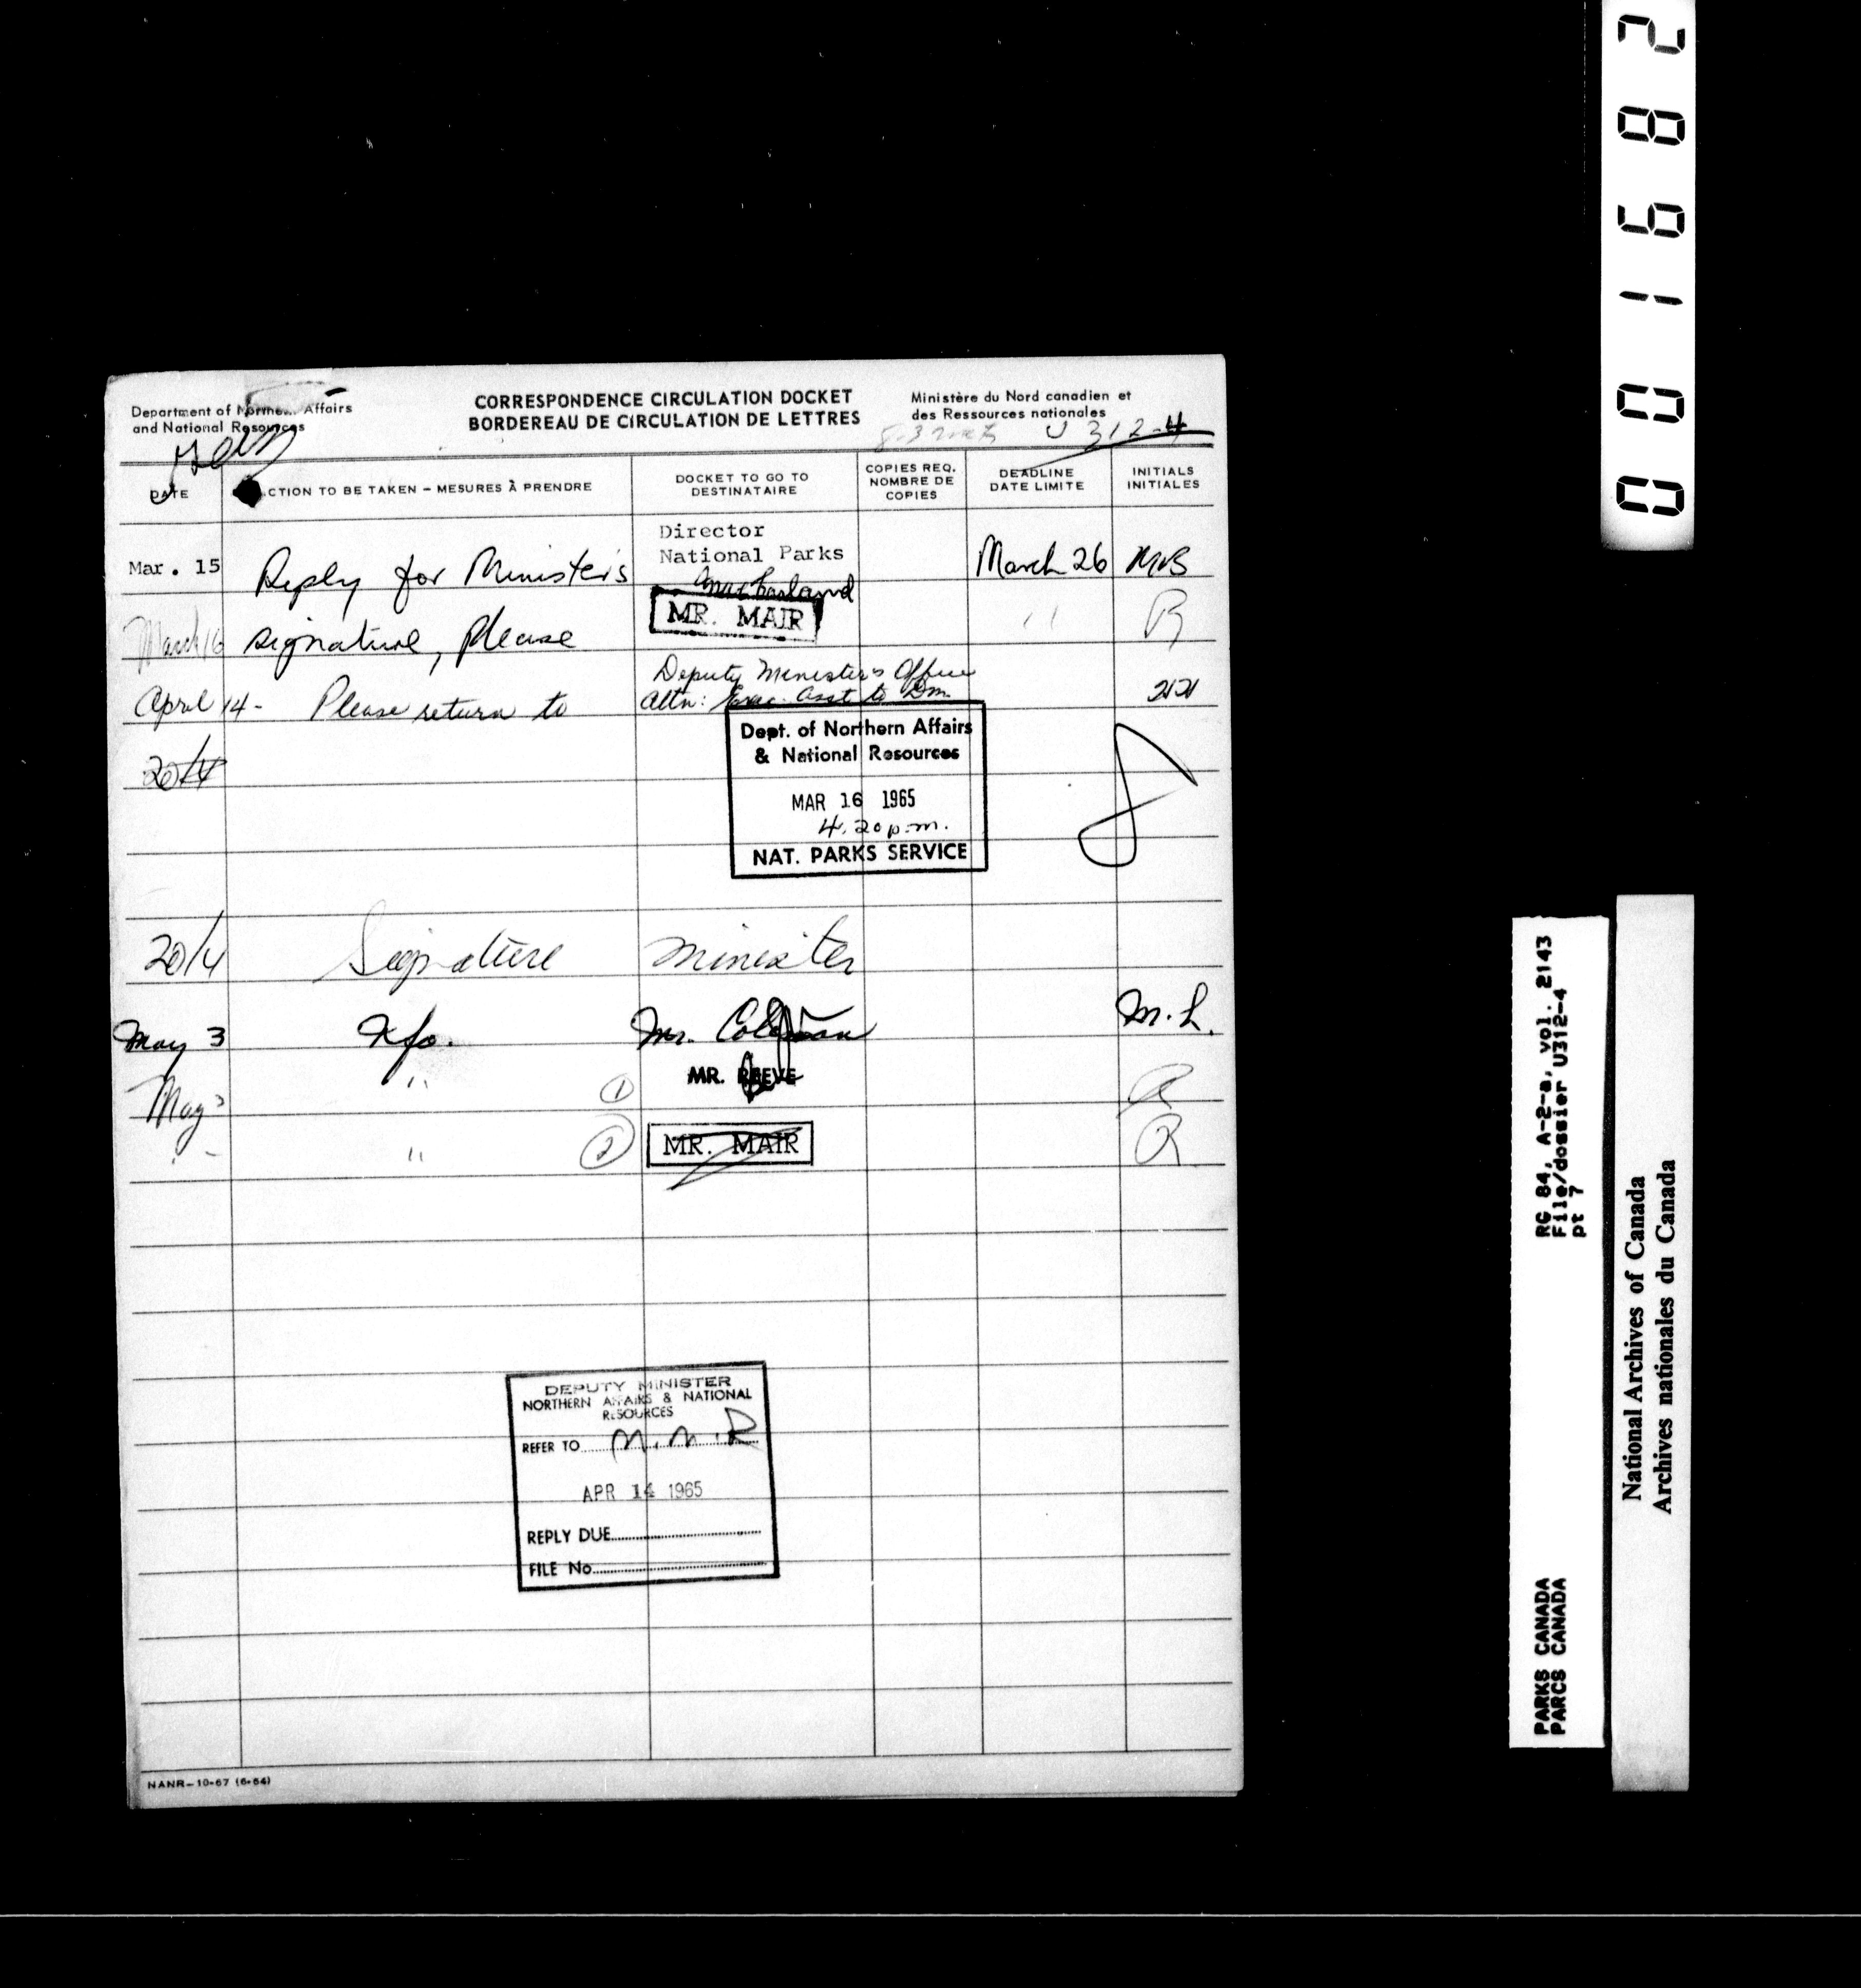 Department of Northern Affairs
and National Resources
CORRESPONDENCE CIRCULATION DOCKET
BORDEREAU DE CIRCULATION DE LETTRES
Ministère du Nord canadien et
des Ressources nationales
U 312-4
DATE
ACTION TO BE TAKEN – MESURES À PRENDRE
DOCKET TO GO TO
DESTINATAIRE
COPIES REQ.
NOMBRE DE
COPIES
DEADLINE
DATE LIMITE
INITIALS
INITIALES
Mar. 15
Reply for Minister's
Director
National Parks
March 26
March 16
signature, please
MR. MAIR
"
R
April 14 - Please return to
Deputy Minister's Office
Attn: Exec. Asst to Dm.
20/4
Dept. of Northern Affairs
& National Resources
MAR 16 1965
4.20 p.m.
NAT. PARKS SERVICE
20/4
Signature
Minister
May 3
Mr. Coleman
M.L.
May 3
"
1
MR. REEVE
R
"
2
MR. MAIR
R
DEPUTY MINISTER
NORTHERN AFFAIRS & NATIONAL
RESOURCES
REFER TO
APR 14 1965
REPLY DUE
FILE No
NANR-10-67 (6-64)
001682
RG 84, A-2-a, vol. 2143
File/dossier U312-4
pt 7
PARKS CANADA
PARCS CANADA
National Archives of Canada
Archives nationales du Canada